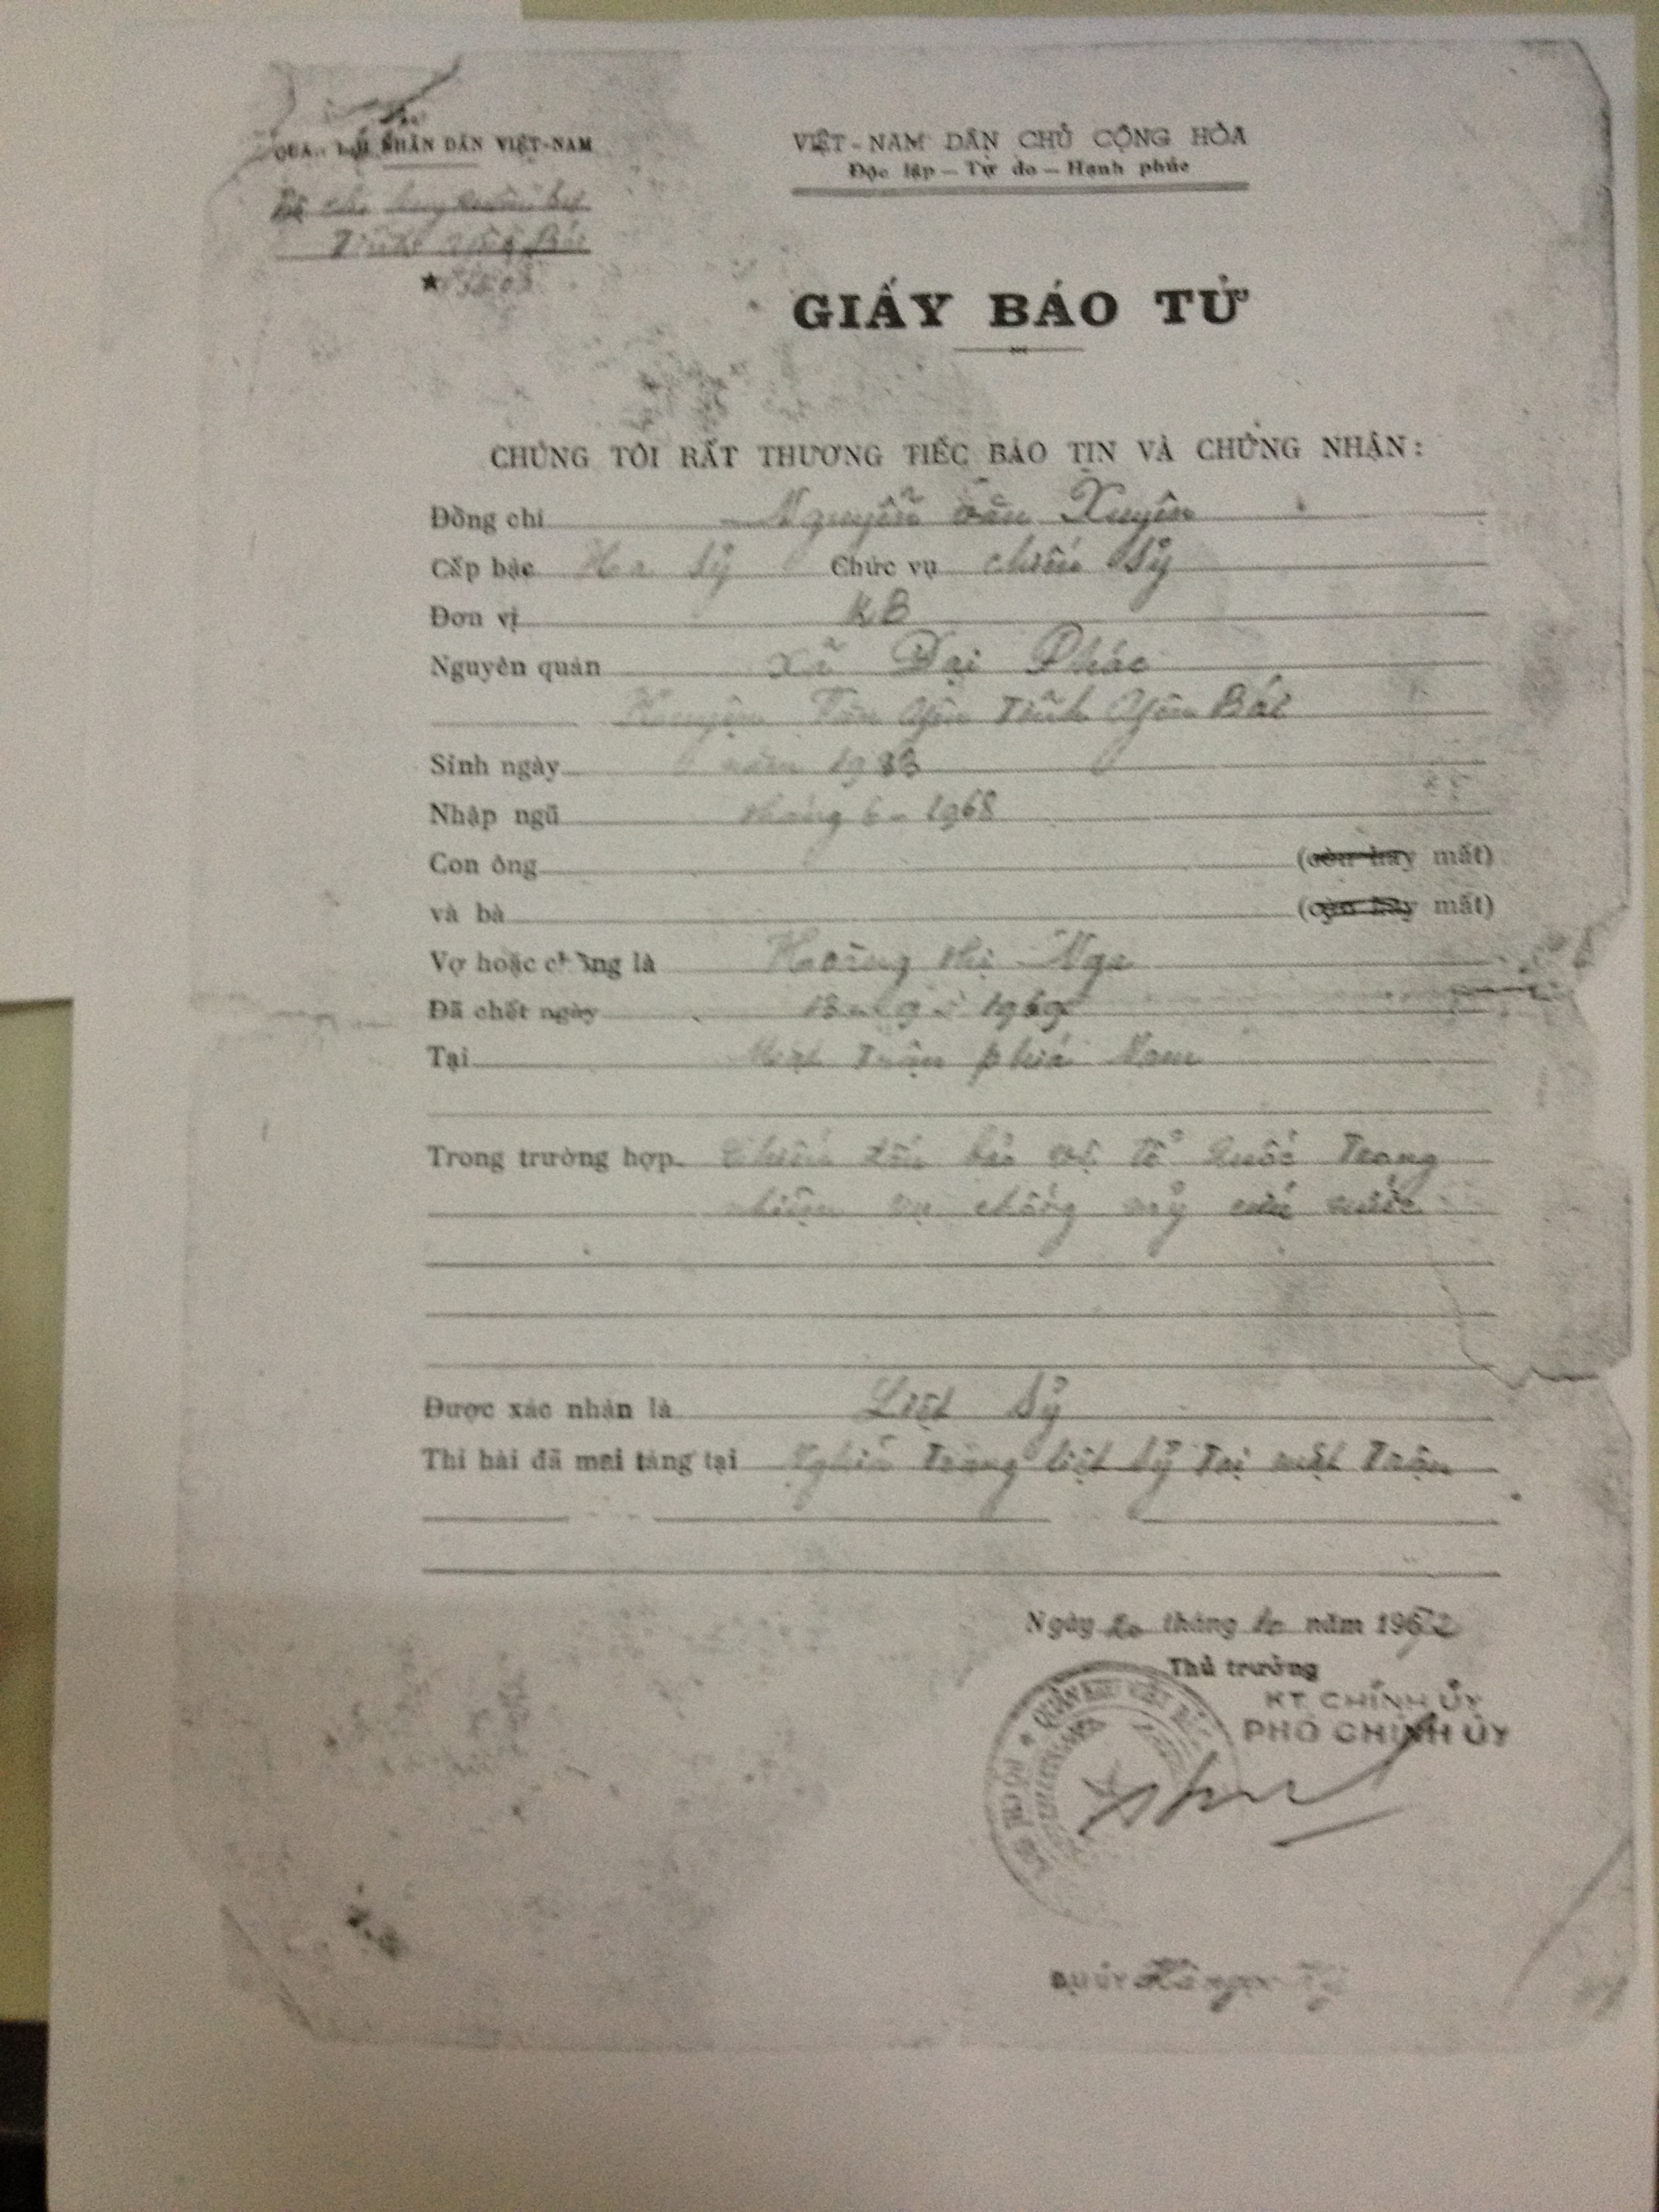 NHÂN DÂN VIỆT-NAM
VIỆT-NAM DÂN CHỦ CỘNG HÒA
Độc lập — Tự do — Hạnh phúc
Tỉnh Yên Bái
GIẤY BÁO TỬ
CHÚNG TÔI RẤT THƯƠNG TIẾC BÁO TIN VÀ CHỨNG NHẬN:
Đồng chí Nguyễn văn Xuyên
Cấp bậc Hạ sỹ Chức vụ chiến sỹ
Đơn vị KB
Nguyên quán xã Đại Phác
Huyện Văn Yên Tỉnh Yên Bái
Sinh ngày năm 19
Nhập ngũ tháng 6 - 1968
Con ông (còn hay mất)
và bà (còn hay mất)
Vợ hoặc chồng là Hoàng thị Nga
Đã chết ngày 1969
Tại Mặt Trận phía Nam
Trong trường hợp chiến đấu bảo vệ tổ quốc Trong
nhiệm vụ chống mỹ cứu nước
Được xác nhận là Liệt sỹ
Thi hài đã mai táng tại Nghĩa Trang liệt sỹ Tại mặt Trận
Ngày 20 tháng 10 năm 19
Thủ trưởng
KT. CHÍNH ỦY
PHÓ CHÍNH ỦY
QUÂN KHU VIỆT BẮC